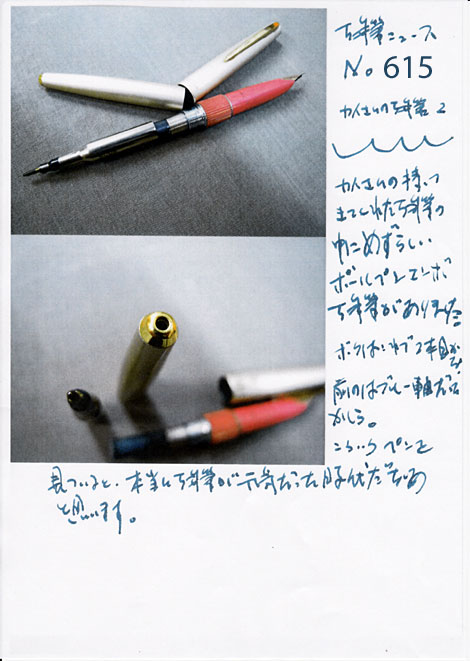 万年筆ニュース
No. 615
カトさんの万年筆 2
カトさんの持って
きてくれた万年筆の
中にめずらしい
ボールペンコンボ
万年筆がありました
ボクはこれで2本目かな
前のはブルー軸だった
かしら。
こういうペンを
見ていると、本当に万年筆が元気だった時代だなあ
と思います。